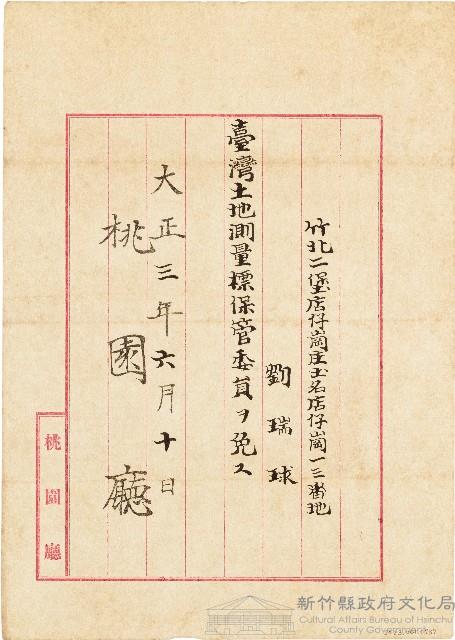 竹北二堡店仔崗庄土名店仔崗一三番地
劉瑞球
臺灣土地測量標保管委員ヲ免ス
大正三年六月十日
桃園廳
桃園廳
新竹縣政府文化局
Cultural Affairs Bureau of Hsinchu
County Government